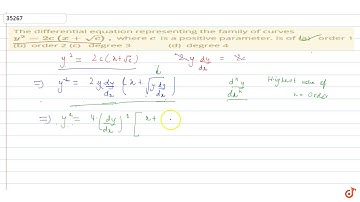 35267
The differential equation representing the family of curves
y² = 2c(x + √c), where c is a positive parameter, is of (a) order 1
(b) order 2 (c) degree 3 (d) degree 4
y² = 2c(x+√c) 2y dy/dx = 2c
⇒) y² = 2y dy/dx (x + √(y dy/dx)) dⁿy/dxⁿ Highest value of
n = Order
⇒) y² = 4·(dy/dx)² [x +